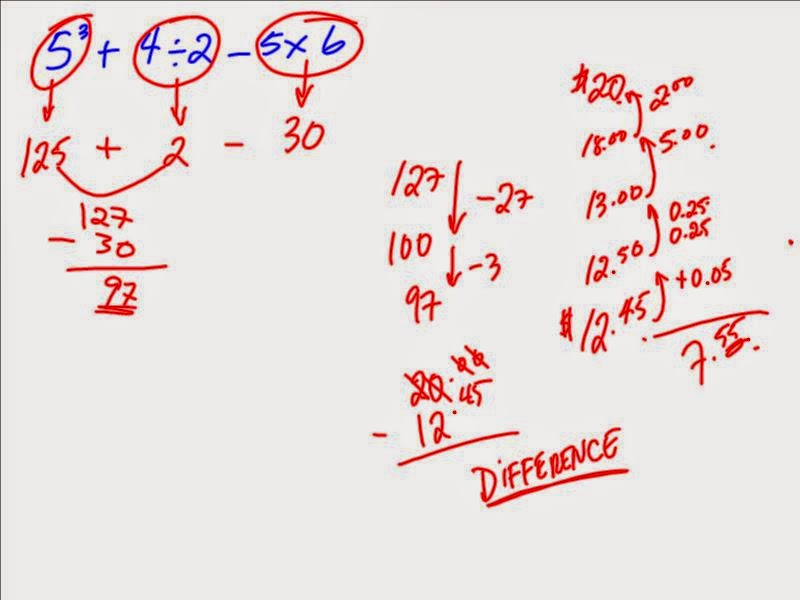 5³ + 4 ÷ 2 - 5 x 6
125 + 2 - 30
127
- 30
97
127
-27
100
-3
97
20.00
- 12.45
DIFFERENCE
$20.
2.00
18.00
5.00.
13.00
0.25
0.25
12.50
+0.05
$12.45
7.55.